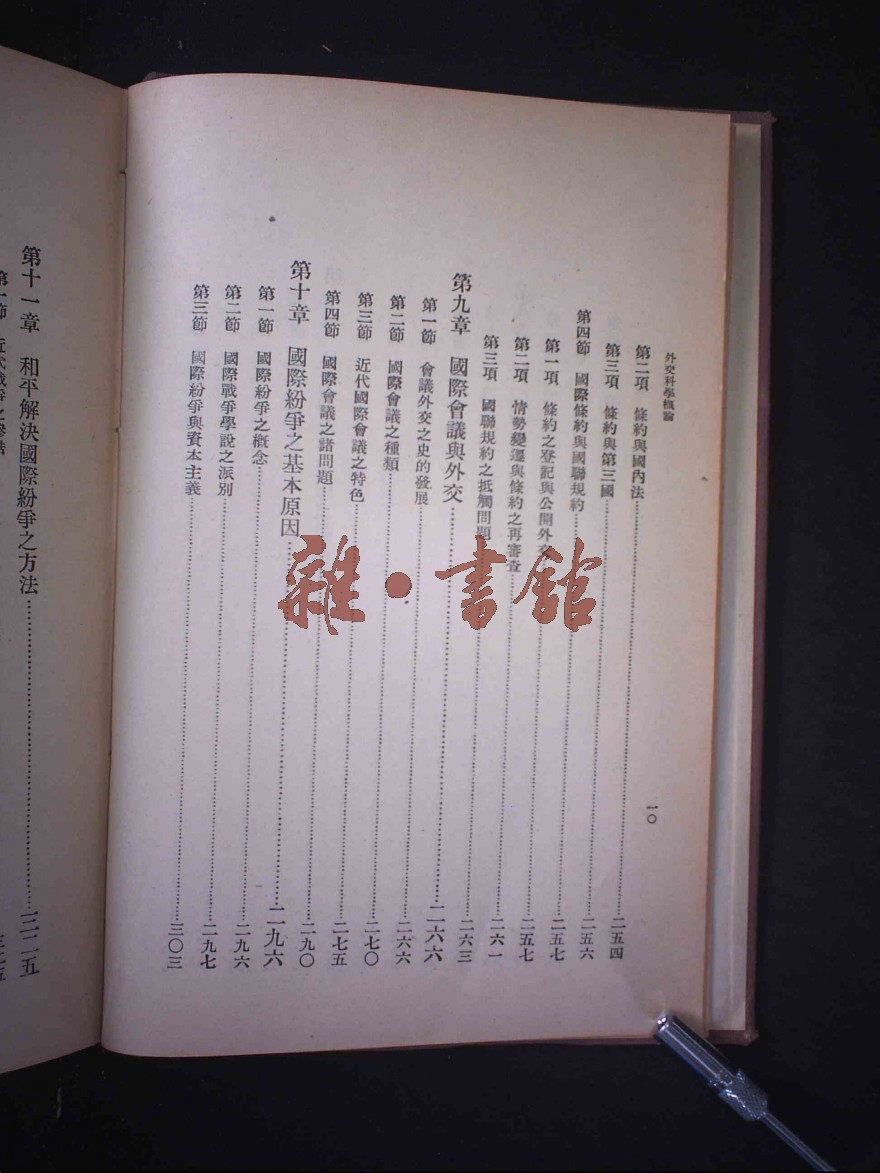 外交科學概論 一〇
第二項 條約與國內法……二五四
第三項 條約與第三國……二五六
第四節 國際條約與國聯規約……二五七
第一項 條約之登記與公開外交……二五七
第二項 情勢變遷與條約之再審查……二六一
第三項 國聯規約之抵觸問題……二六三
第九章 國際會議與外交……二六六
第一節 會議外交之史的發展……二六六
第二節 國際會議之種類……二七〇
第三節 近代國際會議之特色……二七五
第四節 國際會議之諸問題……二九〇
第十章 國際紛爭之基本原因……二九六
第一節 國際紛爭之概念……二九六
第二節 國際戰爭學說之派別……二九七
第三節 國際紛爭與資本主義……三〇三
第十一章 和平解決國際紛爭之方法……三二五
第一節 近代戰爭之慘
雜·書館